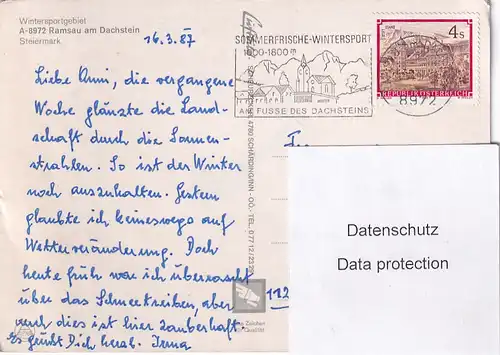 Wintersportgebiet
A-8972 Ramsau am Dachstein
Steiermark
16.3.87
Liebe Anni, die vergangene
Woche glänzte die Land-
schaft durch die Sonnen-
strahlen. So ist der Winter
noch auszuhalten. Gestern
glaubte ich keineswegs auf
Wetterveränderung. Doch
heute früh war ich überrascht
über das Schneetreiben, aber
auch dies ist hier zauberhaft.
Es grüßt Dich herzl. Irma
SOMMERFRISCHE-WINTERSPORT
1100-1800 m
AM FUSSE DES DACHSTEINS
4780 SCHÄRDING/INN - OÖ., TEL. 07712/
4 S
REPUBLIK ÖSTERREICH
8972
112
Datenschutz
Data protection